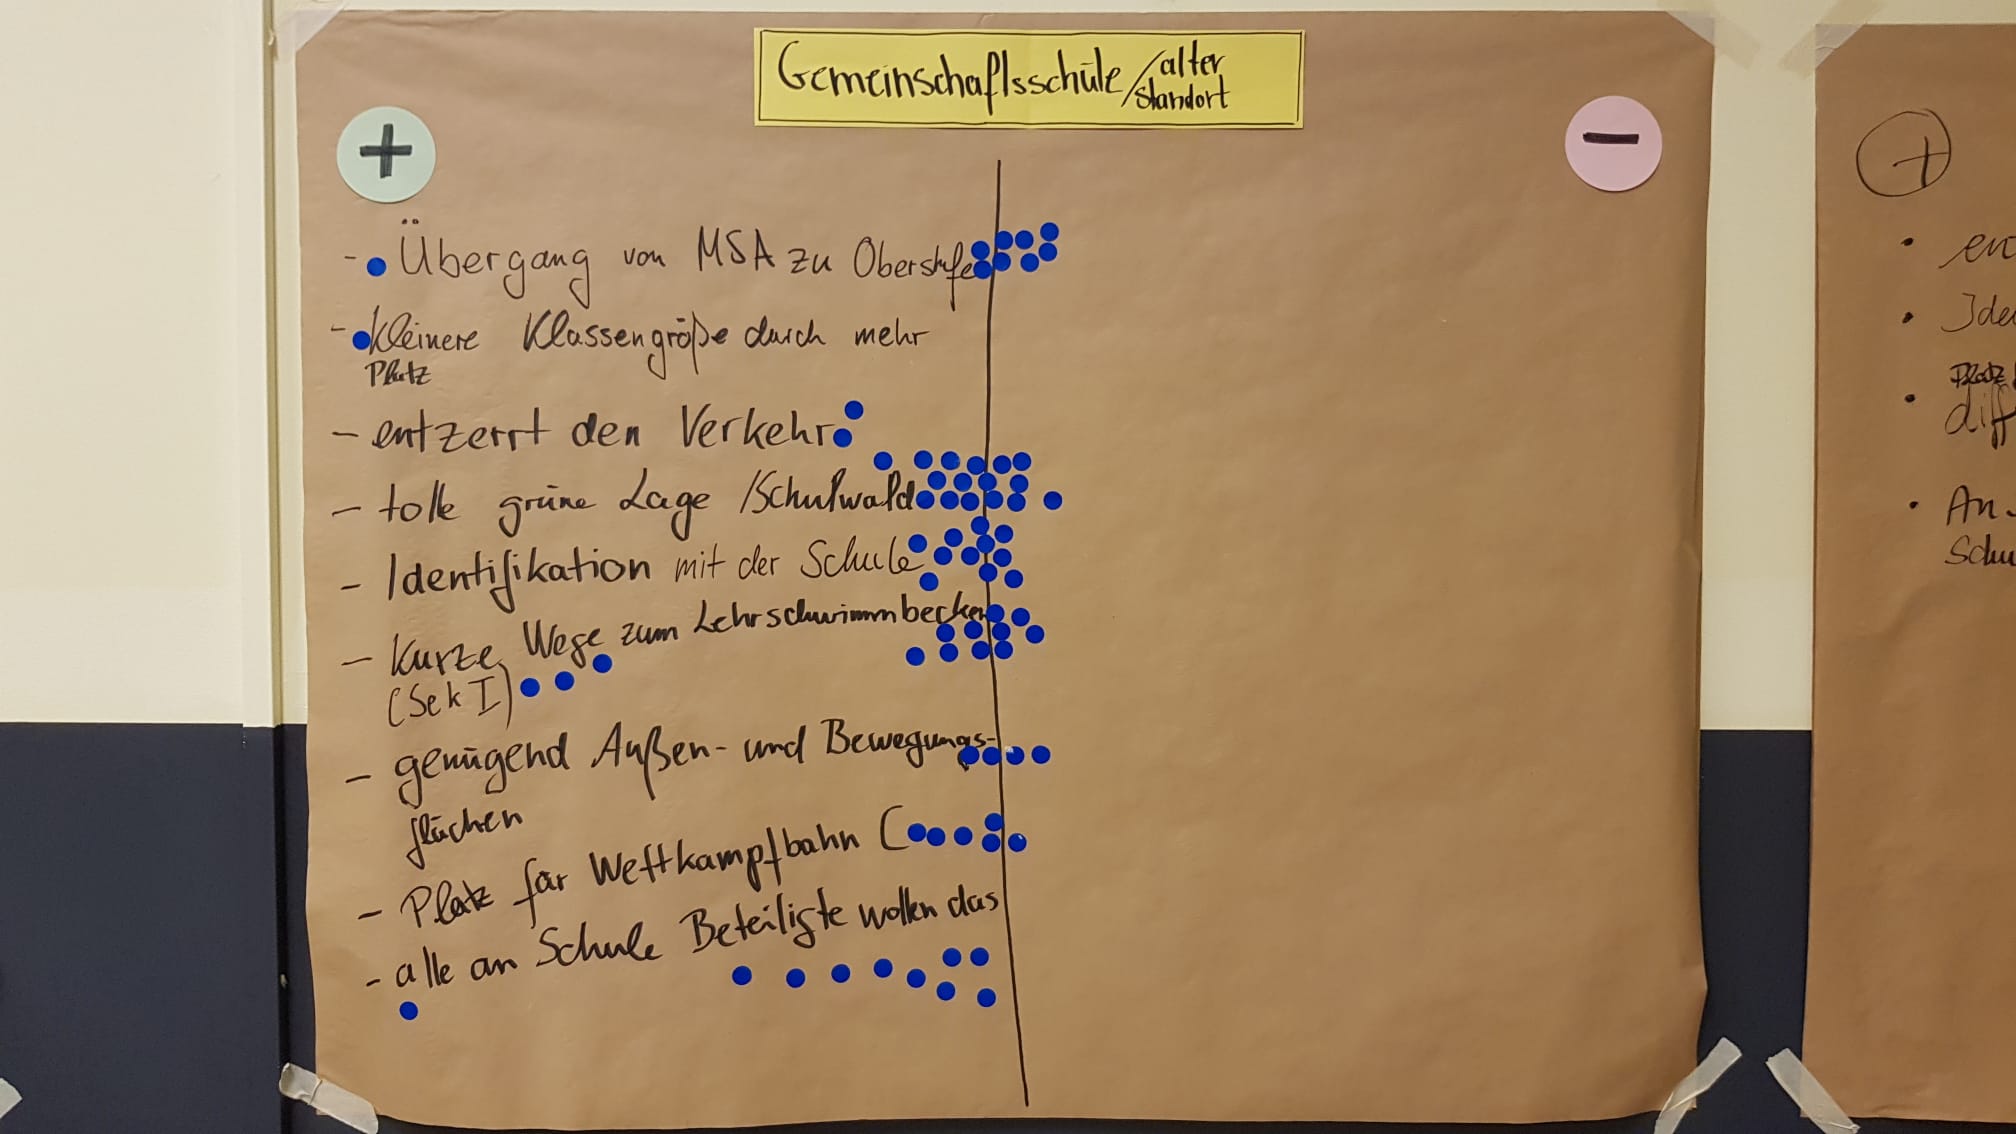 Gemeinschaftsschule / alter
standort
+
-
- Übergang von MSA zu Oberstufe
- kleinere Klassengröße durch mehr
Platz
- entzerrt den Verkehr
- tolle grüne Lage /Schulwald
- Identifikation mit der Schule
- Kurze Wege zum Lehrschwimmbecken
(Sek I)
- genügend Außen- und Bewegungs-
flächen
- Platz für Wettkampfbahn C
- alle an Schule Beteiligte wollen das
+
Platz
diff
An
Schu